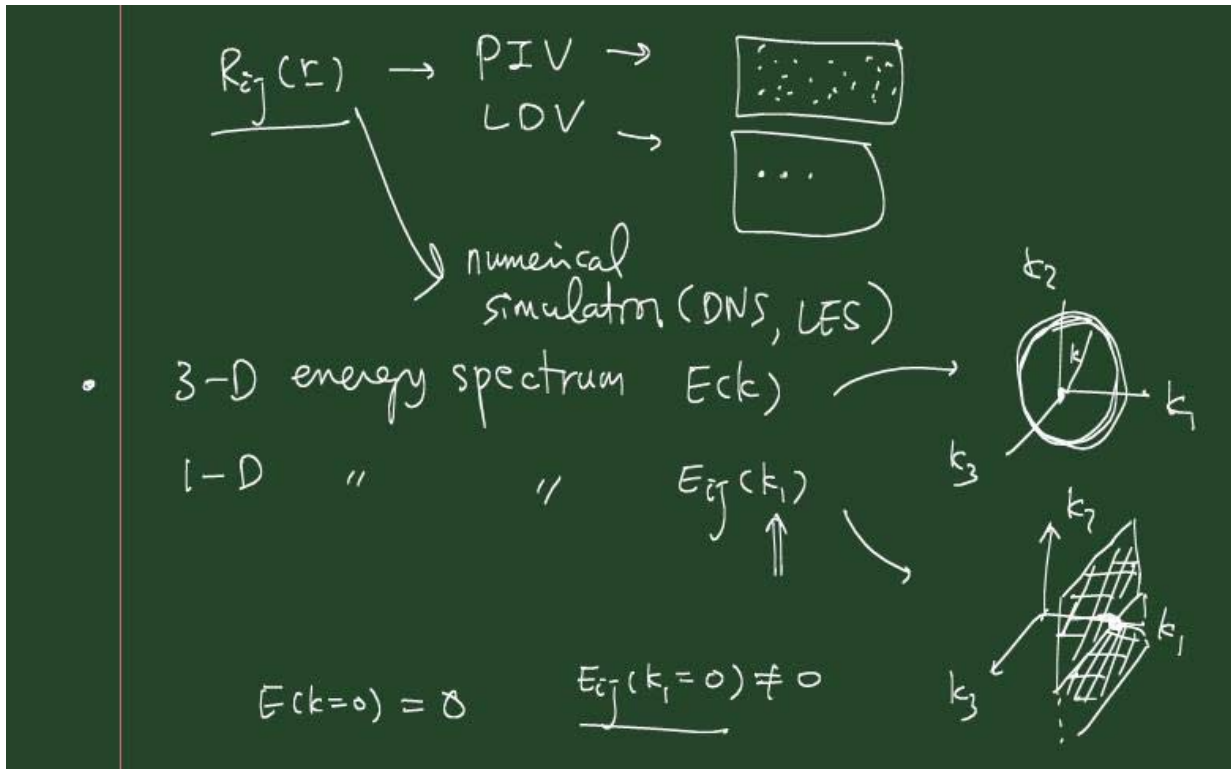 R_ij (r) → PIV →
LDV →
numerical
simulation (DNS, LES)
• 3-D energy spectrum E(k)
k2
k
k1
k3
1-D 〃 〃 E_ij (k1)
⇑
k2
k1
k3
E(k=0) = 0 E_ij (k1=0) ≠ 0